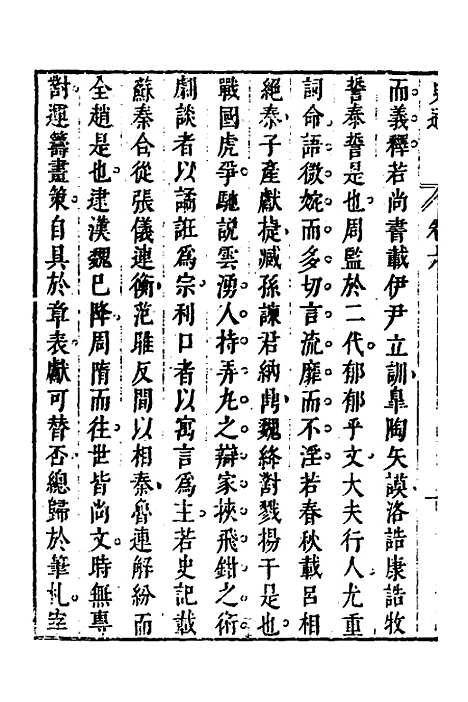 而義釋若尚書載伊尹立訓臯陶矢謨洛誥康誥牧
誓泰誓是也周監於二代郁郁乎文大夫行人尤重
詞命語微婉而多切言流靡而不淫若春秋載呂相
絕秦子產獻捷臧孫諫君納鼎魏絳對戮揚干是也
戰國虎爭馳說雲湧人持弄丸之辯家挾飛鉗之術
劇談者以譎誑爲宗利口者以寓言爲主若史記載
蘇秦合從張儀連衡范雎反間以相秦魯連解紛而
全趙是也逮漢魏已降周隋而往世皆尚文時無專
對運籌畫策自具於章表獻可替否總歸於筆札宰